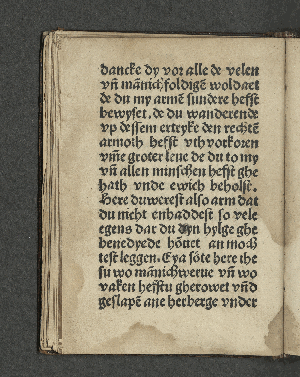 dancke dy vor alle de velen
vñ mãnich foldigẽ woldaet
de du my armẽ sundere hefst
bewyset. de du wanderende
vp dessem ertryke den rechtẽ
armoth hefst vthvorkoren
vm̃e groter leue de du to my
vñ allen minschen hefst ghe
hath vnde ewich beholst.
Here du werest also arm dat
du nicht en haddest so vele
egens dat du dyn hylge ghe
benedyede hôuet an moch
test leggen. Eya sôte here ihe
su wo mãnichwerue vñ wo
vaken hefstu gherowet vñd
geslapẽ ane herberge vnder